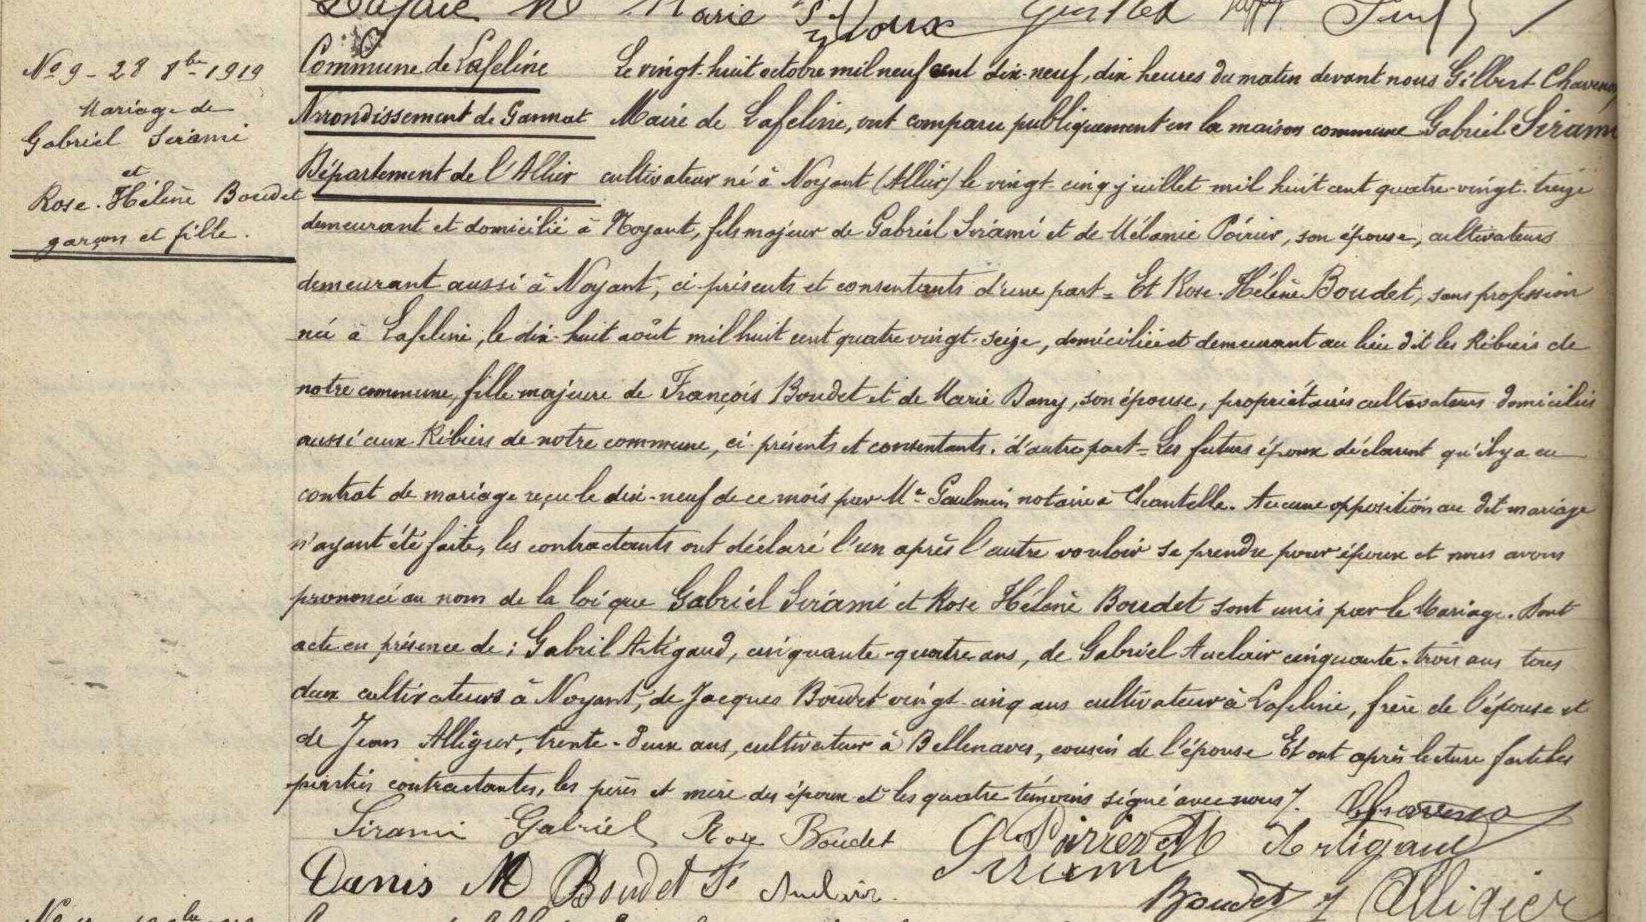 Marie
Roux
No 9 - 28 8bre 1919
Mariage de
Gabriel Sirami
et
Rose-Hélène Boudet
garçon et fille.
Commune de Lafeline
Arrondissement de Gannat
Département de l'Allier
Le vingt-huit octobre mil neuf cent dix-neuf, dix heures du matin devant nous Gilbert
Maire de Lafeline, ont comparu publiquement en la maison commune Gabriel Sirami
cultivateur né à Noyant (Allier) le vingt-cinq juillet mil huit cent quatre-vingt-treize
demeurant et domicilié à Noyant, fils majeur de Gabriel Sirami et de Mélanie Poirier, son épouse, cultivateurs
demeurant aussi à Noyant, ci-présents et consentants d'une part = Et Rose-Hélène Boudet, sans profession
née à Lafeline, le dix-huit août mil huit cent quatre vingt-seize, domiciliée et demeurant au lieu dit les Ribiers de
notre commune, fille majeure de François Boudet et de Marie Dany, son épouse, propriétaires cultivateurs domiciliés
aussi aux Ribiers de notre commune, ci-présents et consentants, d'autre part = Les futurs époux déclarent qu'il y a eu
contrat de mariage reçu le dix-neuf de ce mois par Me Gaulmin notaire à Chantelle. Aucune opposition au dit mariage
n'ayant été faite, les contractants ont déclaré l'un après l'autre vouloir se prendre pour époux et nous avons
prononcé au nom de la loi que Gabriel Sirami et Rose Hélène Boudet sont unis par le Mariage. Dont
acte en présence de : Gabriel Artigaud, cinquante-quatre ans, de Gabriel Auclair cinquante-trois ans tous
deux cultivateurs à Noyant, de Jacques Boudet vingt-cinq ans cultivateur à Lafeline, frère de l'épouse et
de Jean Alligier, trente-deux ans, cultivateur à Bellenaves, cousin de l'épouse Et ont après lecture faite les
parties contractantes, les pères et mère des époux et les quatre témoins signé avec nous /.
Sirami Gabriel Rose Boudet Artigaud
Danis M Boudet Fs Auclair Sirami Boudet J Alligier